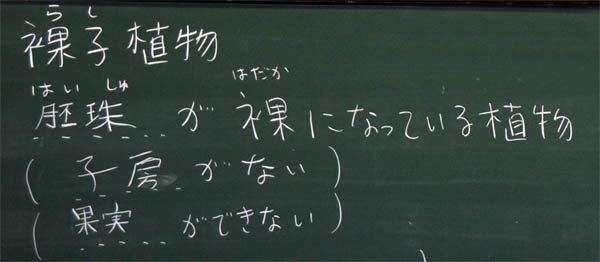 らし
裸子植物
はいしゅ はだか
胚珠が裸になっている植物
(子房がない)
(果実ができない)